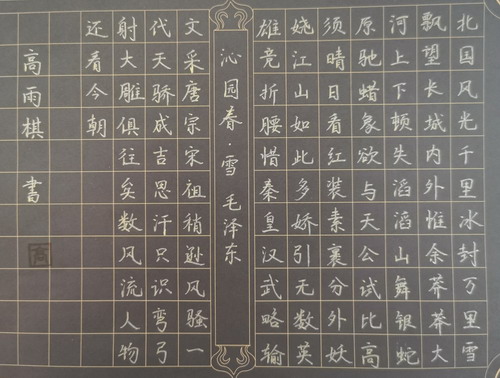 北国风光千里冰封万里雪
飘望长城内外惟余莽莽大
河上下顿失滔滔山舞银蛇
原驰蜡象欲与天公试比高
须晴日看红装素裹分外妖
娆江山如此多娇引无数英
雄竞折腰惜秦皇汉武略输
沁园春·雪 毛泽东
文采唐宗宋祖稍逊风骚一
代天骄成吉思汗只识弯弓
射大雕俱往矣数风流人物
还看今朝
高雨棋 书